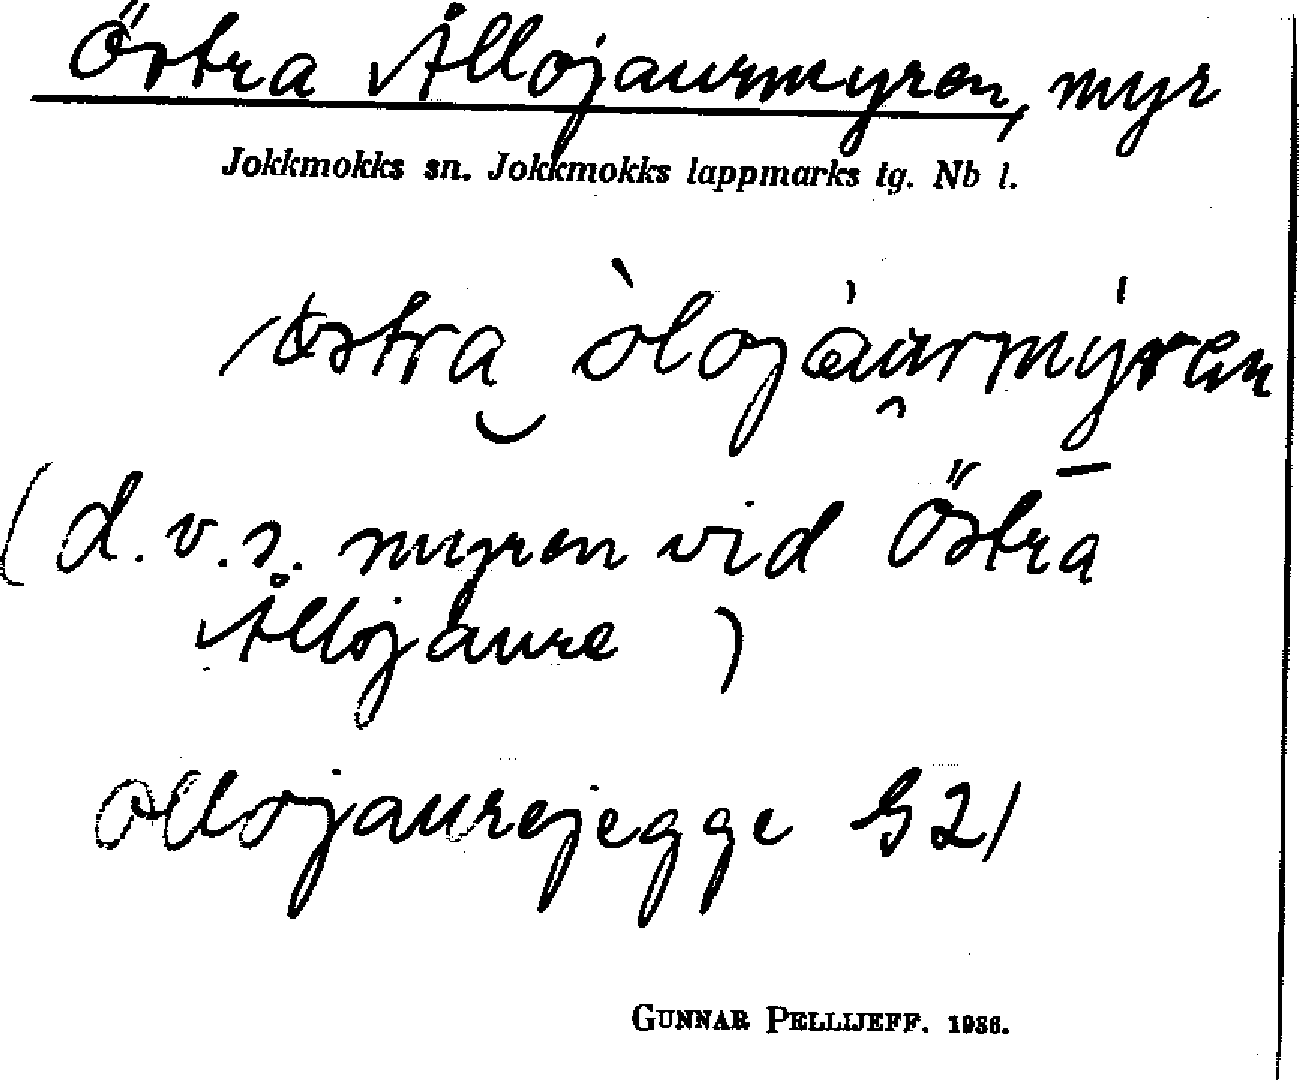 Östra Ållojaurmyren, myr
Jokkmokks sn. Jokkmokks lappmarks tg. Nb l.
östra òlojàurmýren
(d.v.s. myren vid Östra
Ållojaure)
Ollojaurejegge G2/
GUNNAR PELLIJEFF. 1936.